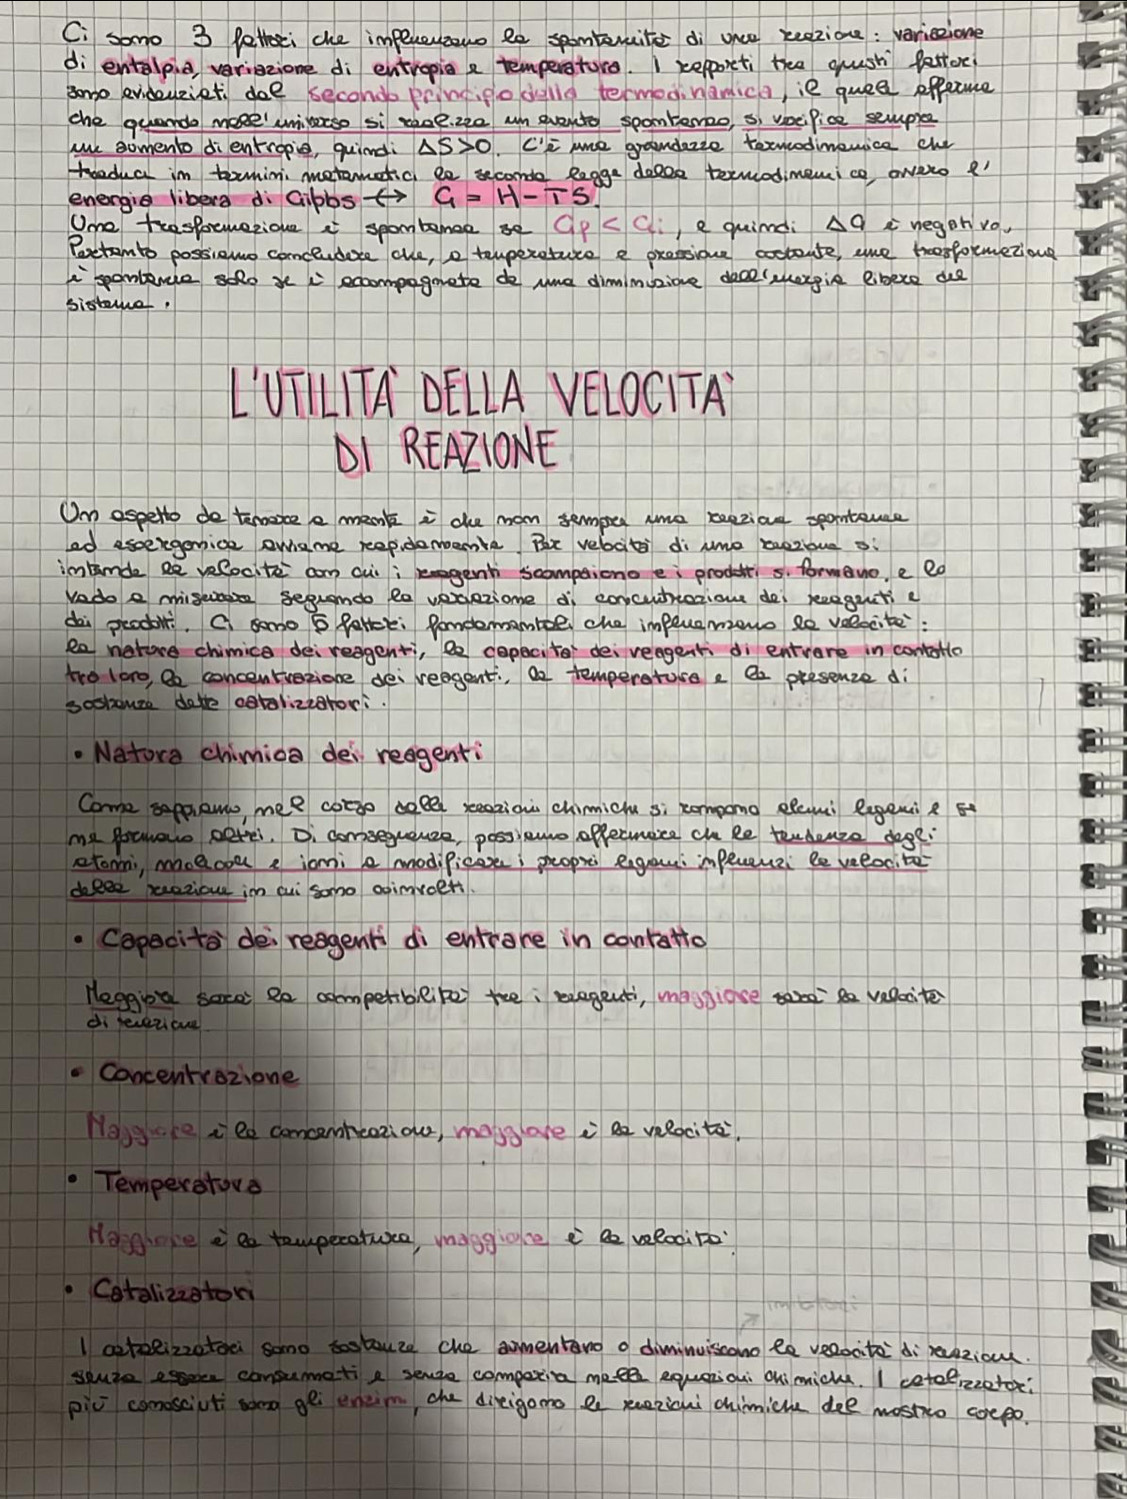 Ci sono 3 fattori che influenzano la spontaneità di una reazione: variazione
di entalpia, variazione di entropia e temperatura. I rapporti tra questi fattori
sono evidenziati dal secondo principio della termodinamica, il quale afferma
che quando nell'universo si realizza un evento spontaneo, si verifica sempre
un aumento di entropia, quindi ΔS>0. C'è una grandezza termodinamica che
traduce in termini matematici la seconda legge della termodinamica, ovvero l'
energia libera di Gibbs ↔ G = H-TS.
Una trasformazione è spontanea se Gf < Gi, e quindi ΔG è negativo.
Pertanto possiamo concludere che, a temperatura e pressione costante, una trasformazione
è spontanea solo se è accompagnata da una diminuzione dell'energia libera del
sistema.
L'UTILITA' DELLA VELOCITA'
DI REAZIONE
Un aspetto da tenere a mente è che non sempre una reazione spontanea
ed esoergonica avviene rapidamente. Per velocità di una reazione si
intende la velocità con cui i reagenti scompaiono e i prodotti si formano, e la
vado a misurare seguendo la variazione di concentrazione dei reagenti e
dei prodotti. Ci sono 5 fattori fondamentali che influenzano la velocità:
la natura chimica dei reagenti, la capacità dei reagenti di entrare in contatto
tra loro, la concentrazione dei reagenti, la temperatura e la presenza di
sostanze dette catalizzatori.
• Natura chimica dei reagenti
Come sappiamo, nel corso delle reazioni chimiche si rompono alcuni legami e se
ne formano altri. Di conseguenza, possiamo affermare che la tendenza degli
atomi, molecole e ioni a modificare i propri legami influenzi la velocità
della reazione in cui sono coinvolti.
• Capacità dei reagenti di entrare in contatto
Maggiore sarà la compatibilità tra i reagenti, maggiore sarà la velocità
di reazione.
• Concentrazione
Maggiore è la concentrazione, maggiore è la velocità.
• Temperatura
Maggiore è la temperatura, maggiore è la velocità.
• Catalizzatori
I catalizzatori sono sostanze che aumentano o diminuiscono la velocità di reazione
senza essere consumati e senza comparire nelle equazioni chimiche. I catalizzatori
più conosciuti sono gli enzimi, che dirigono le reazioni chimiche del nostro corpo.